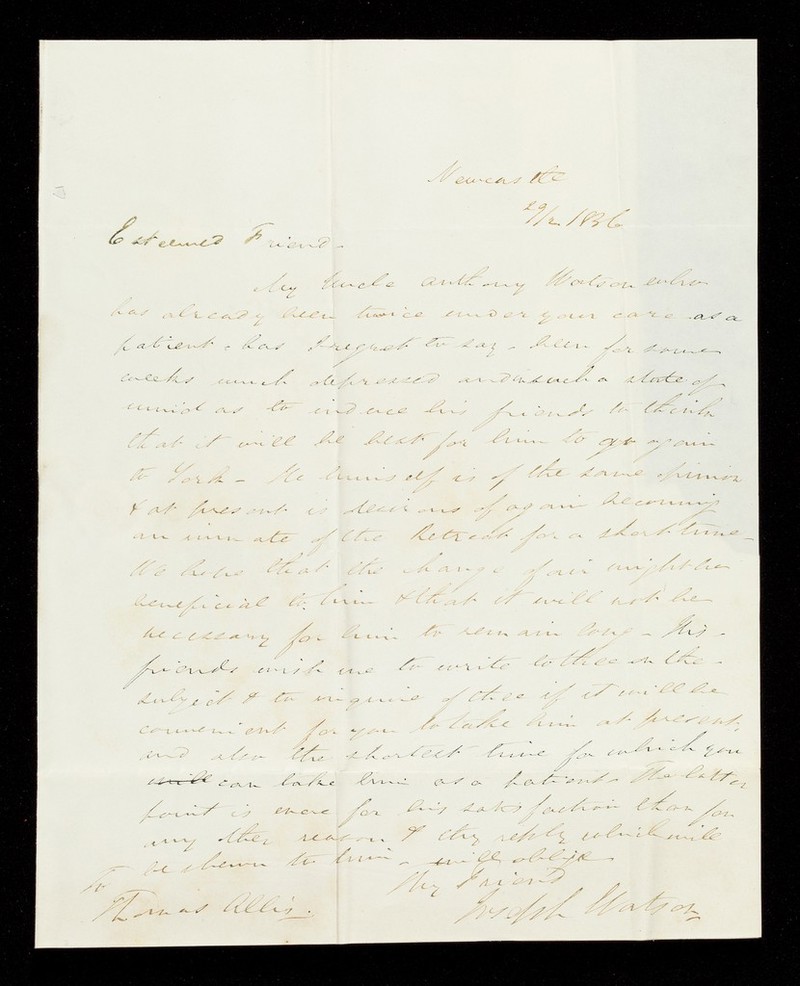 Newcastle
29/2 1836
Esteemed Friend -
My Uncle Anthony Watson who
has already been twice under your care as a
patient - has I regret to say - been for some
weeks much depressed and in such a state of
mind as to induce his friends to think
that it will be best for him to go again
to York - He himself is of the same opinion
& at present is desirous of again becoming
an inmate of the Retreat for a short time -
We hope that the change of air might be
beneficial to him & that it will not be
necessary for him to remain long - His
friends wish me to write to thee on the
subject & to enquire of thee if it will be
convenient for you to take him at present,
and also the shortest time for which you
will can take him as a patient - The latter
point is more for his satisfaction than for
any other reason & thy reply which will
be shewn to him - will oblige
Thy Friend
To
Thomas Allis.
Joseph Watson